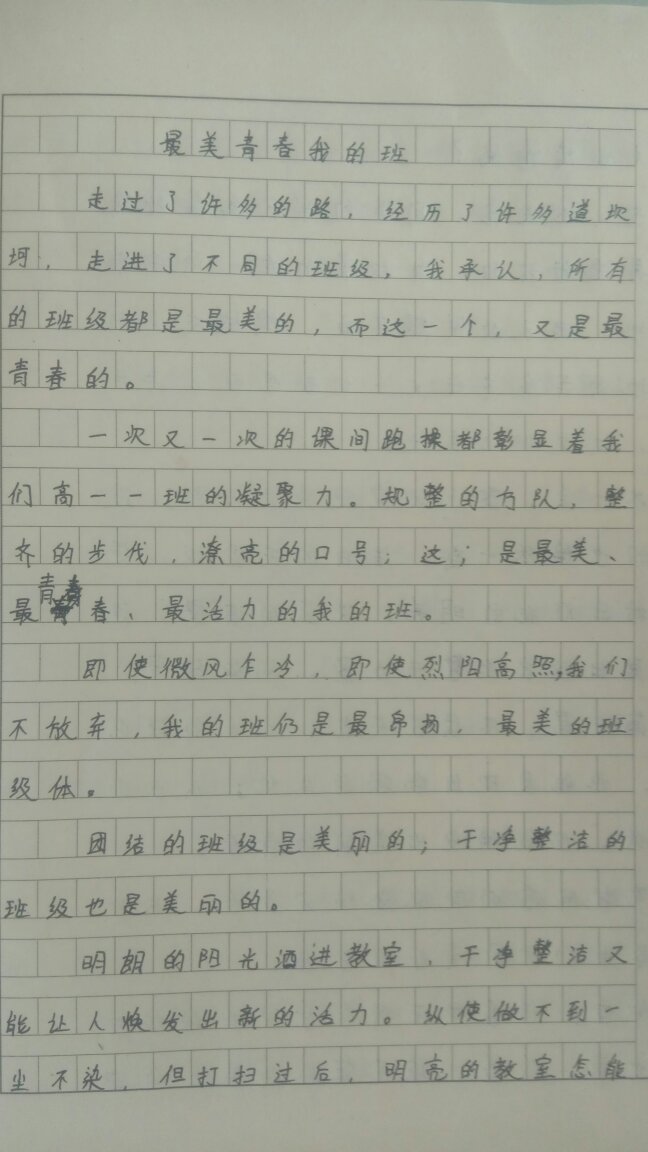 最美青春我的班
走过了许多的路，经历了许多道坎
坷，走进了不同的班级，我承认，所有
的班级都是最美的，而这一个，又是最
青春的。
一次又一次的课间跑操都彰显着我
们高一一班的凝聚力。规整的方队，整
齐的步伐，潦亮的口号；这；是最美、
最青春、最活力的我的班。
即使微风乍冷，即使烈阳高照，我们
不放弃，我的班仍是最昂扬，最美的班
级体。
团结的班级是美丽的；干净整洁的
班级也是美丽的。
明朗的阳光酒进教室，干净整洁又
能让人焕发出新的活力。纵使做不到一
尘不染，但打扫过后，明亮的教室怎能